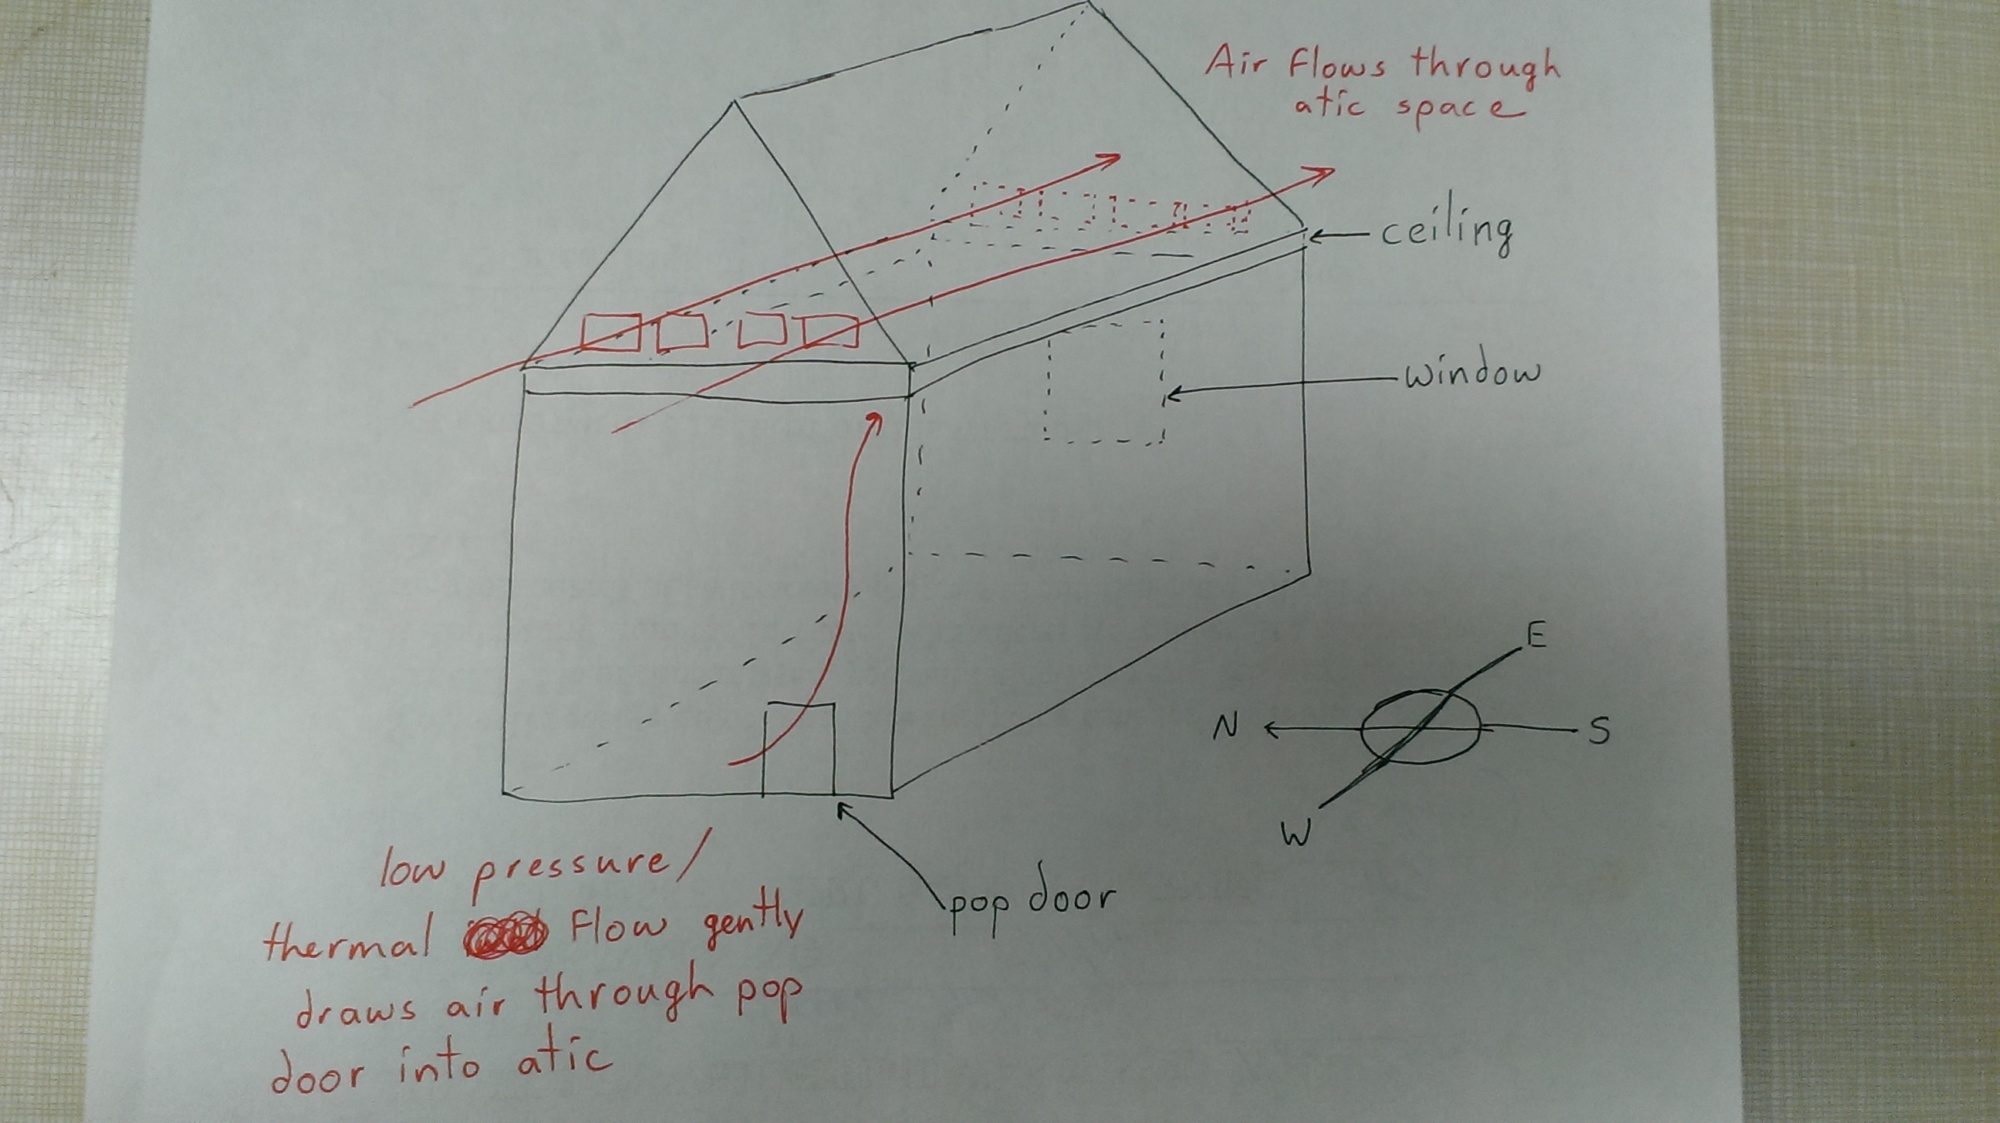 Air flows through
atic space
ceiling
window
E
N
S
W
pop door
low pressure/
thermal flow gently
draws air through pop
door into atic